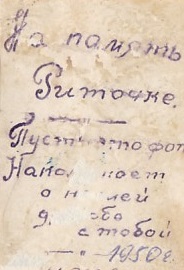 На память
Риточке.
Пусть это фот
Напоминает
о нашей
с тобой
1950 г.